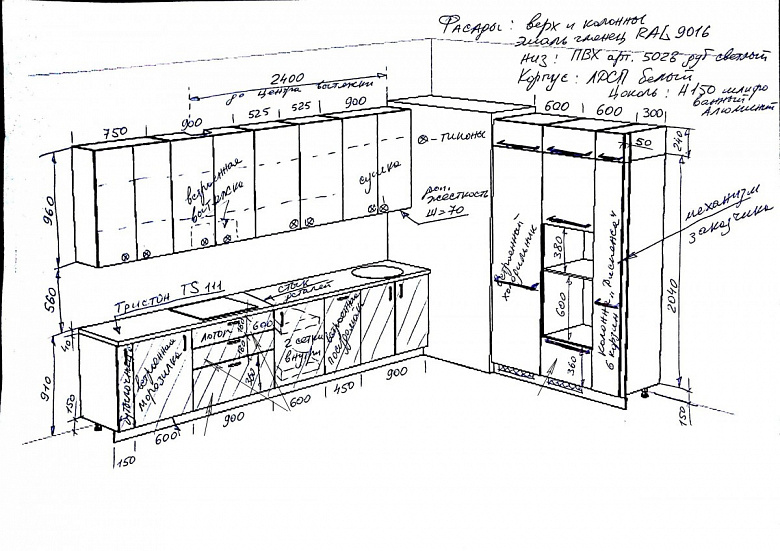 Фасады: верх и колонны
эмаль глянец RAL 9016
низ: ПВХ арт. 5028 дуб светлый
Корпус: ЛДСП белый
Цоколь: H 150 шлифо
ванный
Алюминий
2400
до центра вытяжки
750
900
525
525
900
600
600
300
50
240
⊗ - типоны
встроенная
вытяжка
сушка
доп.
жесткость
Ш=70
960
560
40
910
150
механизм
заказчика
встроенный
холодильник
380
600
360
колонна
в кухню "Диспенса"
2040
150
Тристон TS 111
стык
деталей
бутылочница
встроенная
морозилка
лоток
690
180
350
2 сетки
внутри
встроенная
посудомойка
150
600
900
600
450
900